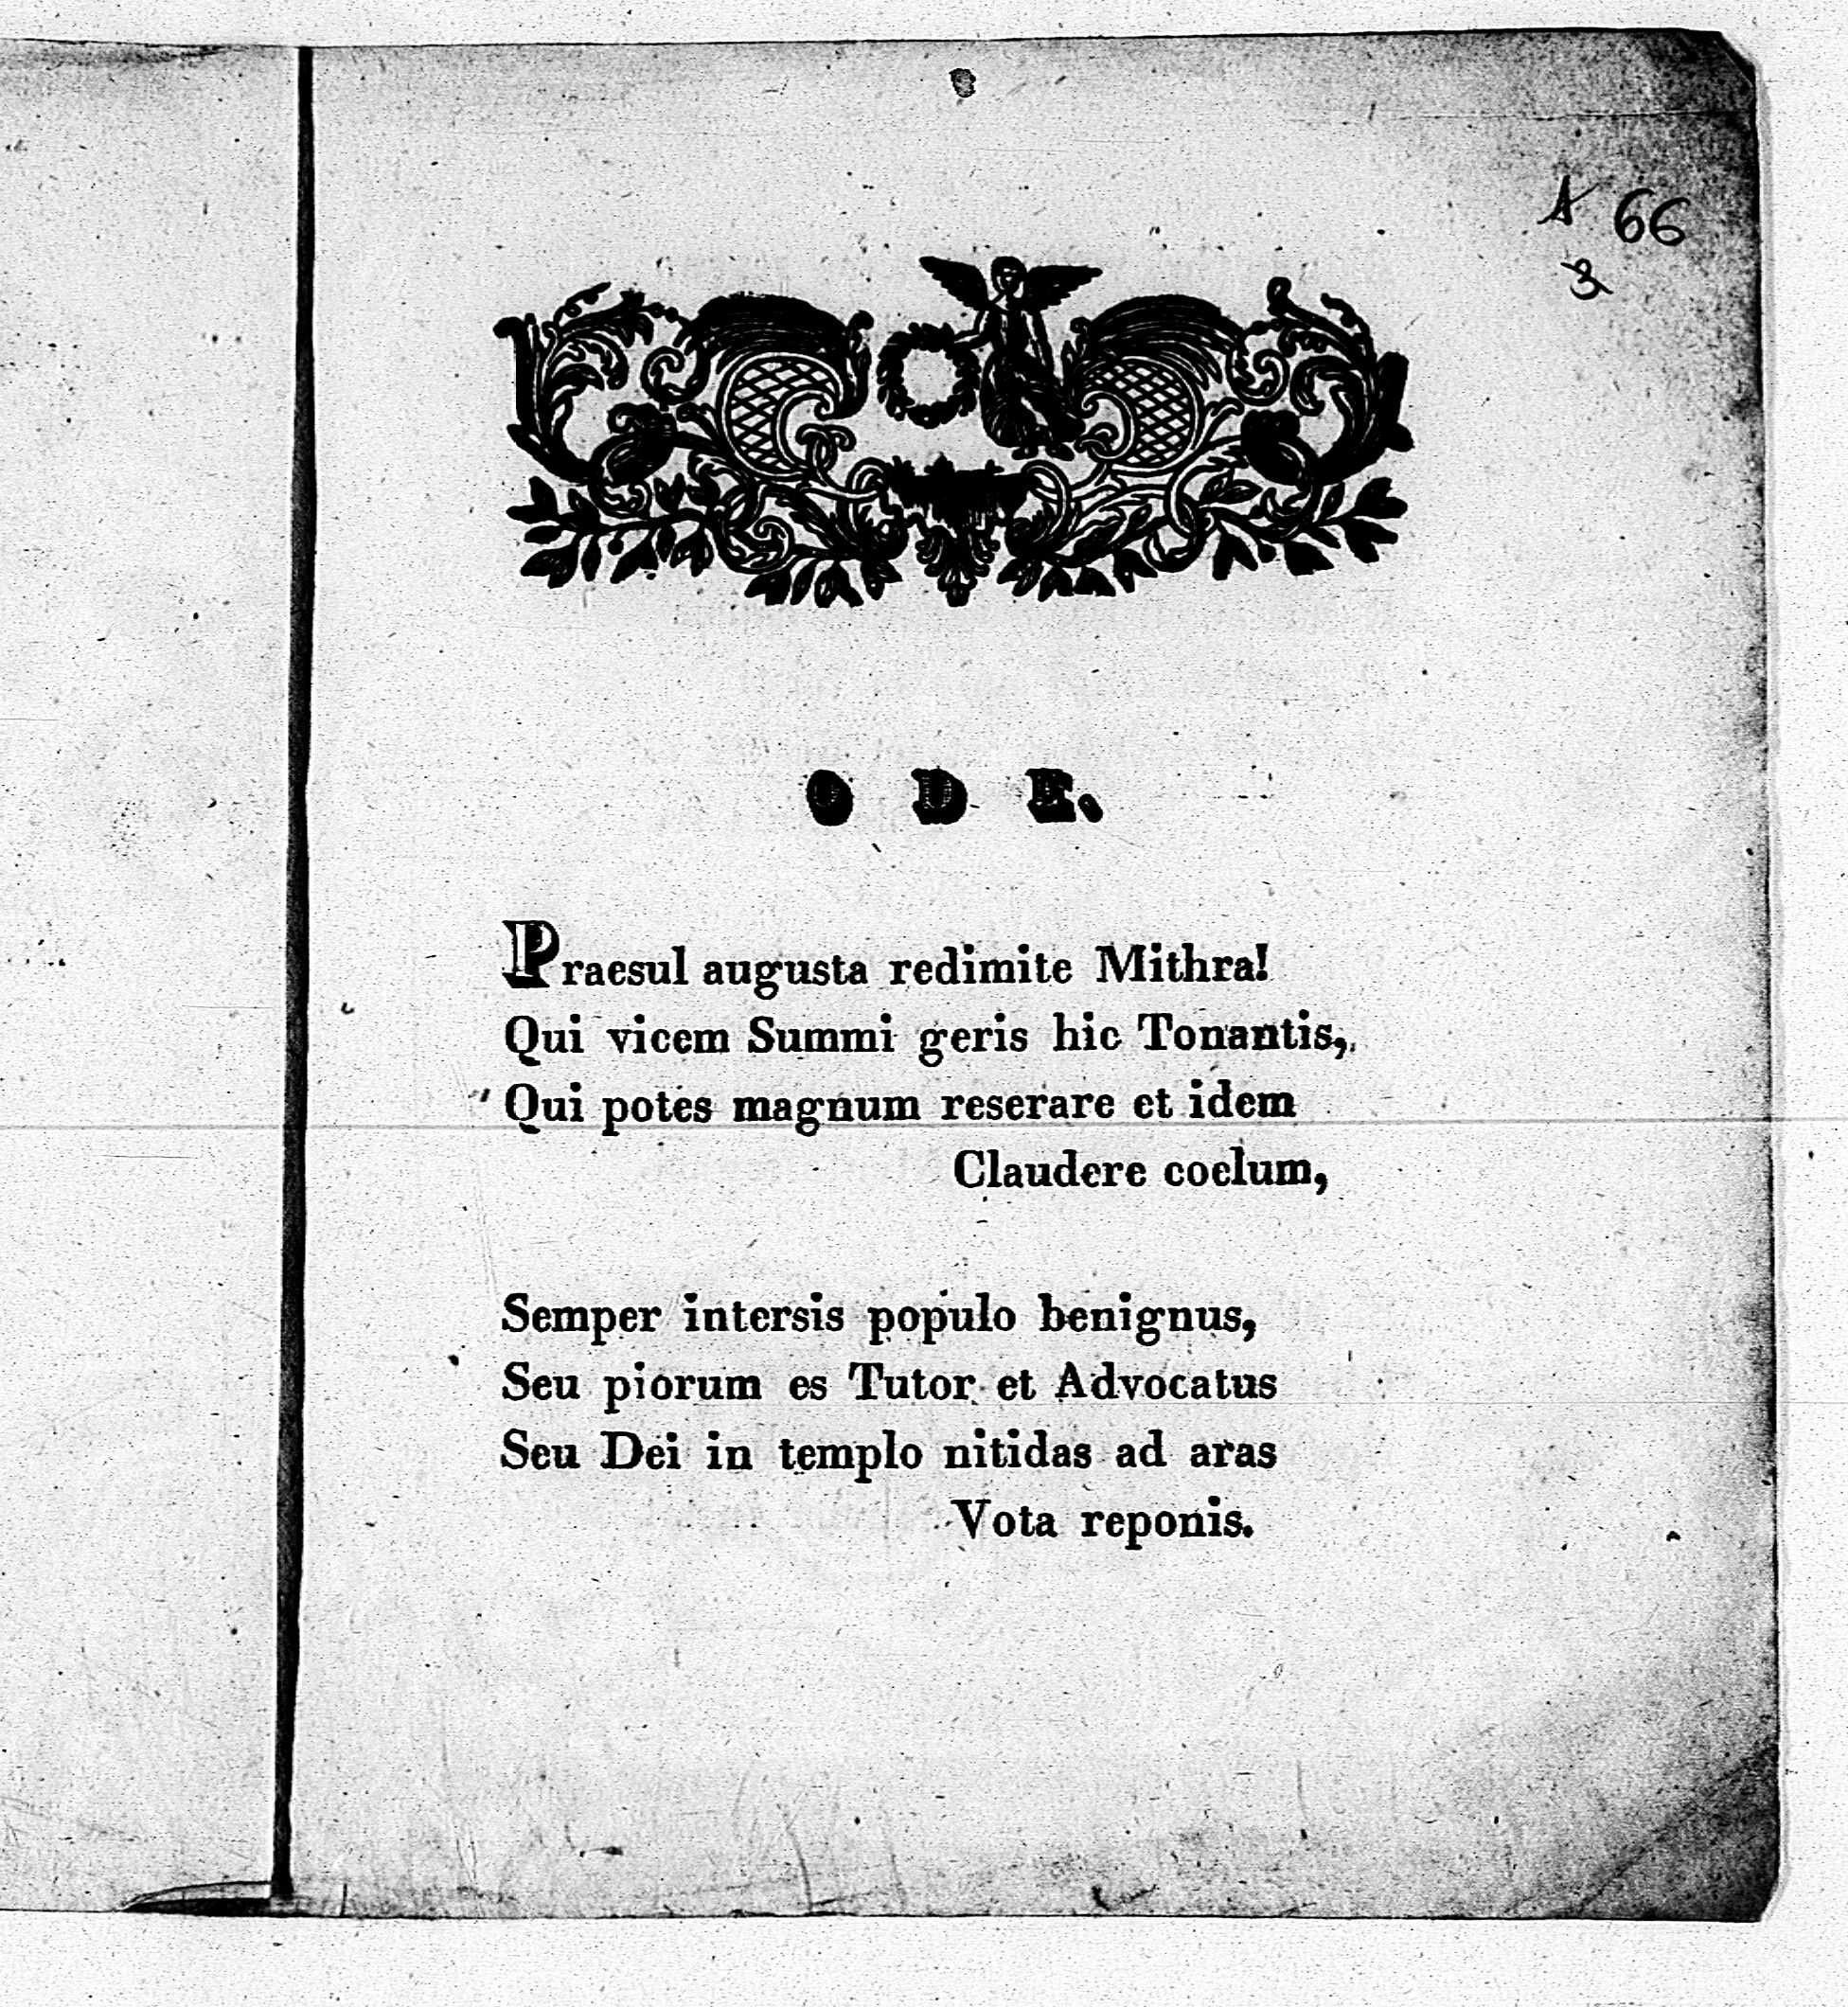 66
3
O D E.
Praesul augusta redimite Mithra!
Qui vicem Summi geris hic Tonantis,
Qui potes magnum reserare et idem
Claudere coelum,
Semper intersis populo benignus,
Seu piorum es Tutor et Advocatus
Seu Dei in templo nitidas ad aras
Vota reponis.